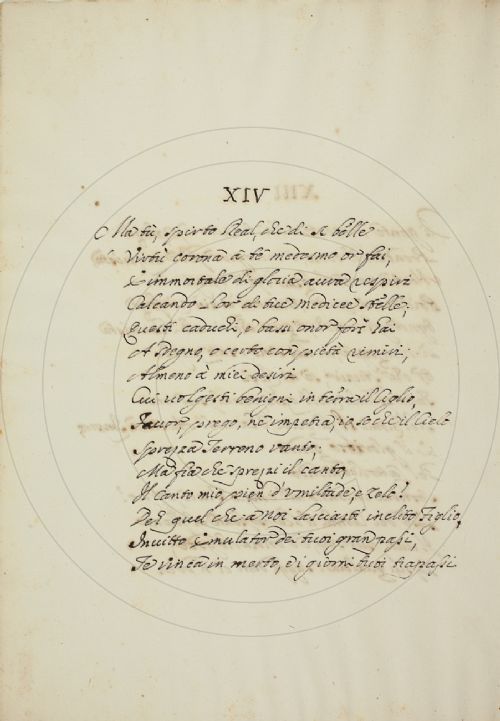 XIV
Ma tu, spirto Real, che di sì belle
Virtù corona à te medesmo or fai,
E immortale di gloria aura respiri
Calcando l'or di tue medicee stelle;
Questi caduchi, e bassi onor forse hai
A sdegno, o certo con pietà rimiri;
Almeno à miei desiri
Cui volgesti benigni in terra il Ciglio,
Favor, prego, ne impetra; io so che il Cielo
Sprezza Terreno vanto;
Ma fia che sprezzi il canto,
Il Canto mio, pien d'umiltade, e zelo?
Deh quel che a noi lasciasti inclito Figlio,
Invitto Emulator de tuoi gran passi,
Te vinca in merto, e i giorni tuoi trapassi